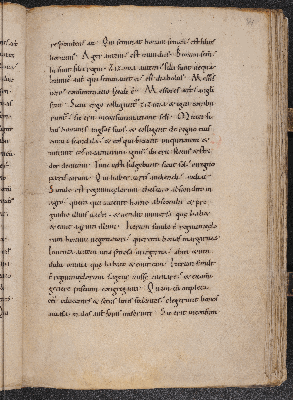 respondens ait. Qui seminat bonum semen est filius
hominis. Ager autem est mundus. Bonum sem
hi sunt filii regni. Zizania autem filii sunt nequā
Inimicus aut qui seminavit ea est diabolus. Messis
vero consummatio seculi ē. Messores aut angli
sunt. Sicut ergo colligunt zizania et igni combu
runt sic erit in consummatione scli. Mittet fili
us hominis anglos suos et colligent de regno eius
omnia scandala et eos qui faciunt iniquitatem et
mittent eos in caminum ignis. Ibi erit fletus et stri
dor dentium. Tunc iusti fulgebunt sicut sol in regno
patris eorum. Qui habet aures audiendi audiat
Simile est regnum caelorum thesauro abscondito in
agro. quem qui invenit homo abscondit et pre
gaudio illius vadit et vendit universa que habet
et emit agrum illum. Iterum simile ē regnum celo
rum homini negotiatori querenti bonas margaritas
Inventa autem una preciosa margarita abiit et ven
didit omnia que habuit et emit eam. Iterum simile
ē regnum celorum sagene misse in mare et ex omni
genere piscium congreganti. Quam cū impleta
eēt educentes et secus litus sedentes elegerunt bonos
in vasa malos aut foras miserunt. Sic erit in consum